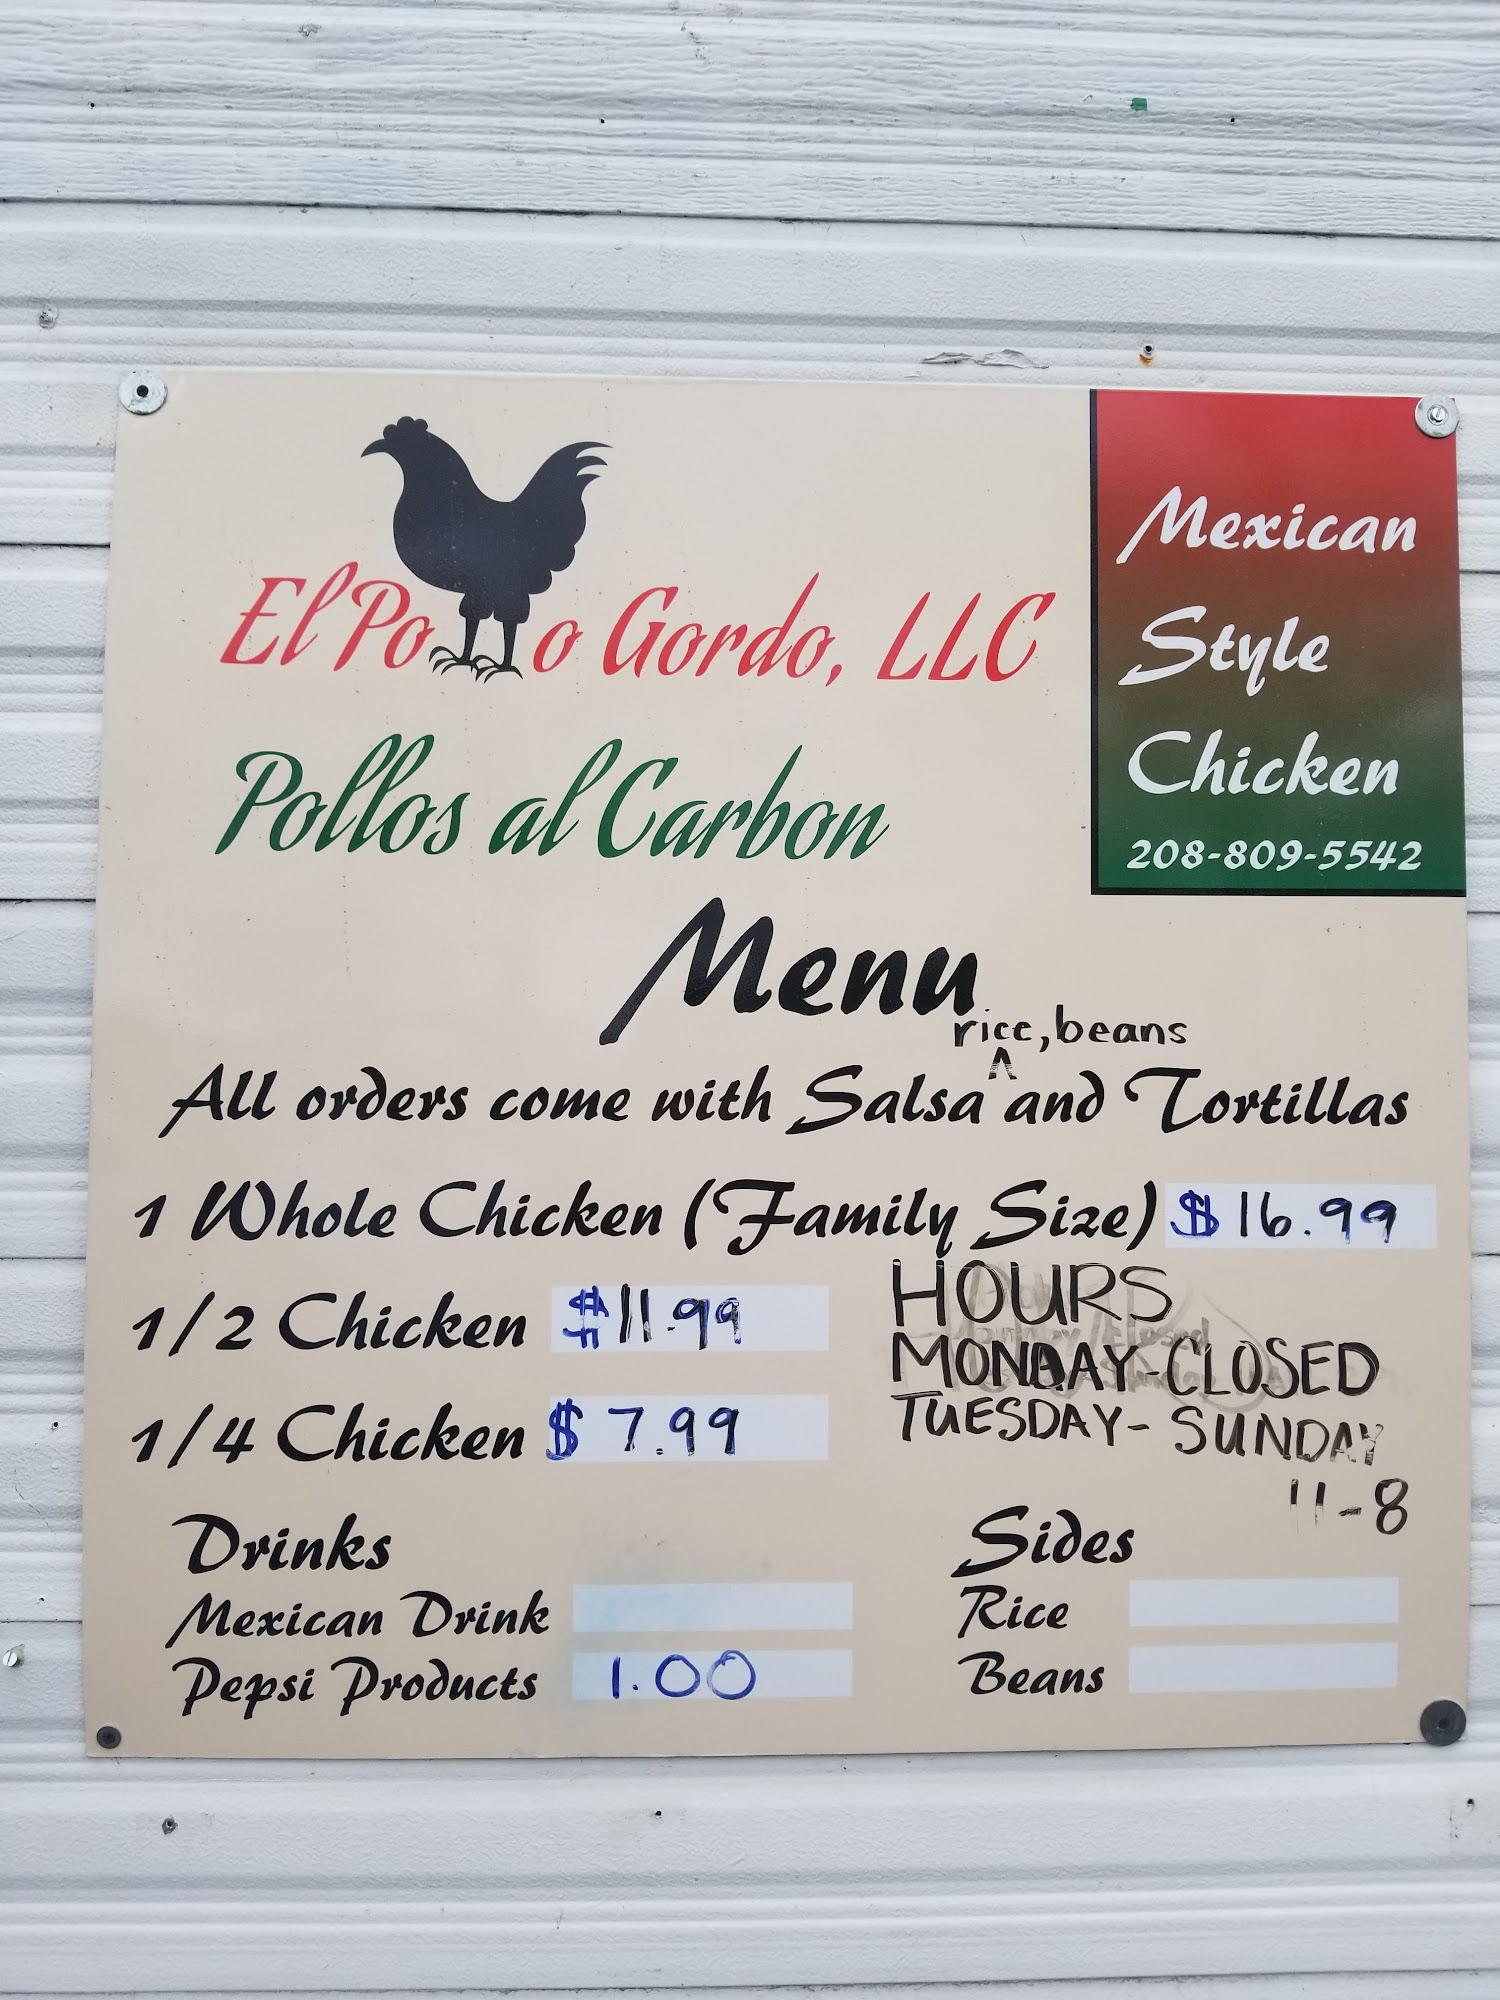 El Pollo Gordo, LLC
Pollos al Carbon
Mexican
Style
Chicken
208-809-5542
Menu
rice, beans
All orders come with Salsa ^ and Tortillas
1 Whole Chicken (Family Size) $16.99
1/2 Chicken $11.99
1/4 Chicken $7.99
HOURS
MONDAY-CLOSED
TUESDAY-SUNDAY
11-8
Drinks
Mexican Drink
Pepsi Products 1.00
Sides
Rice
Beans